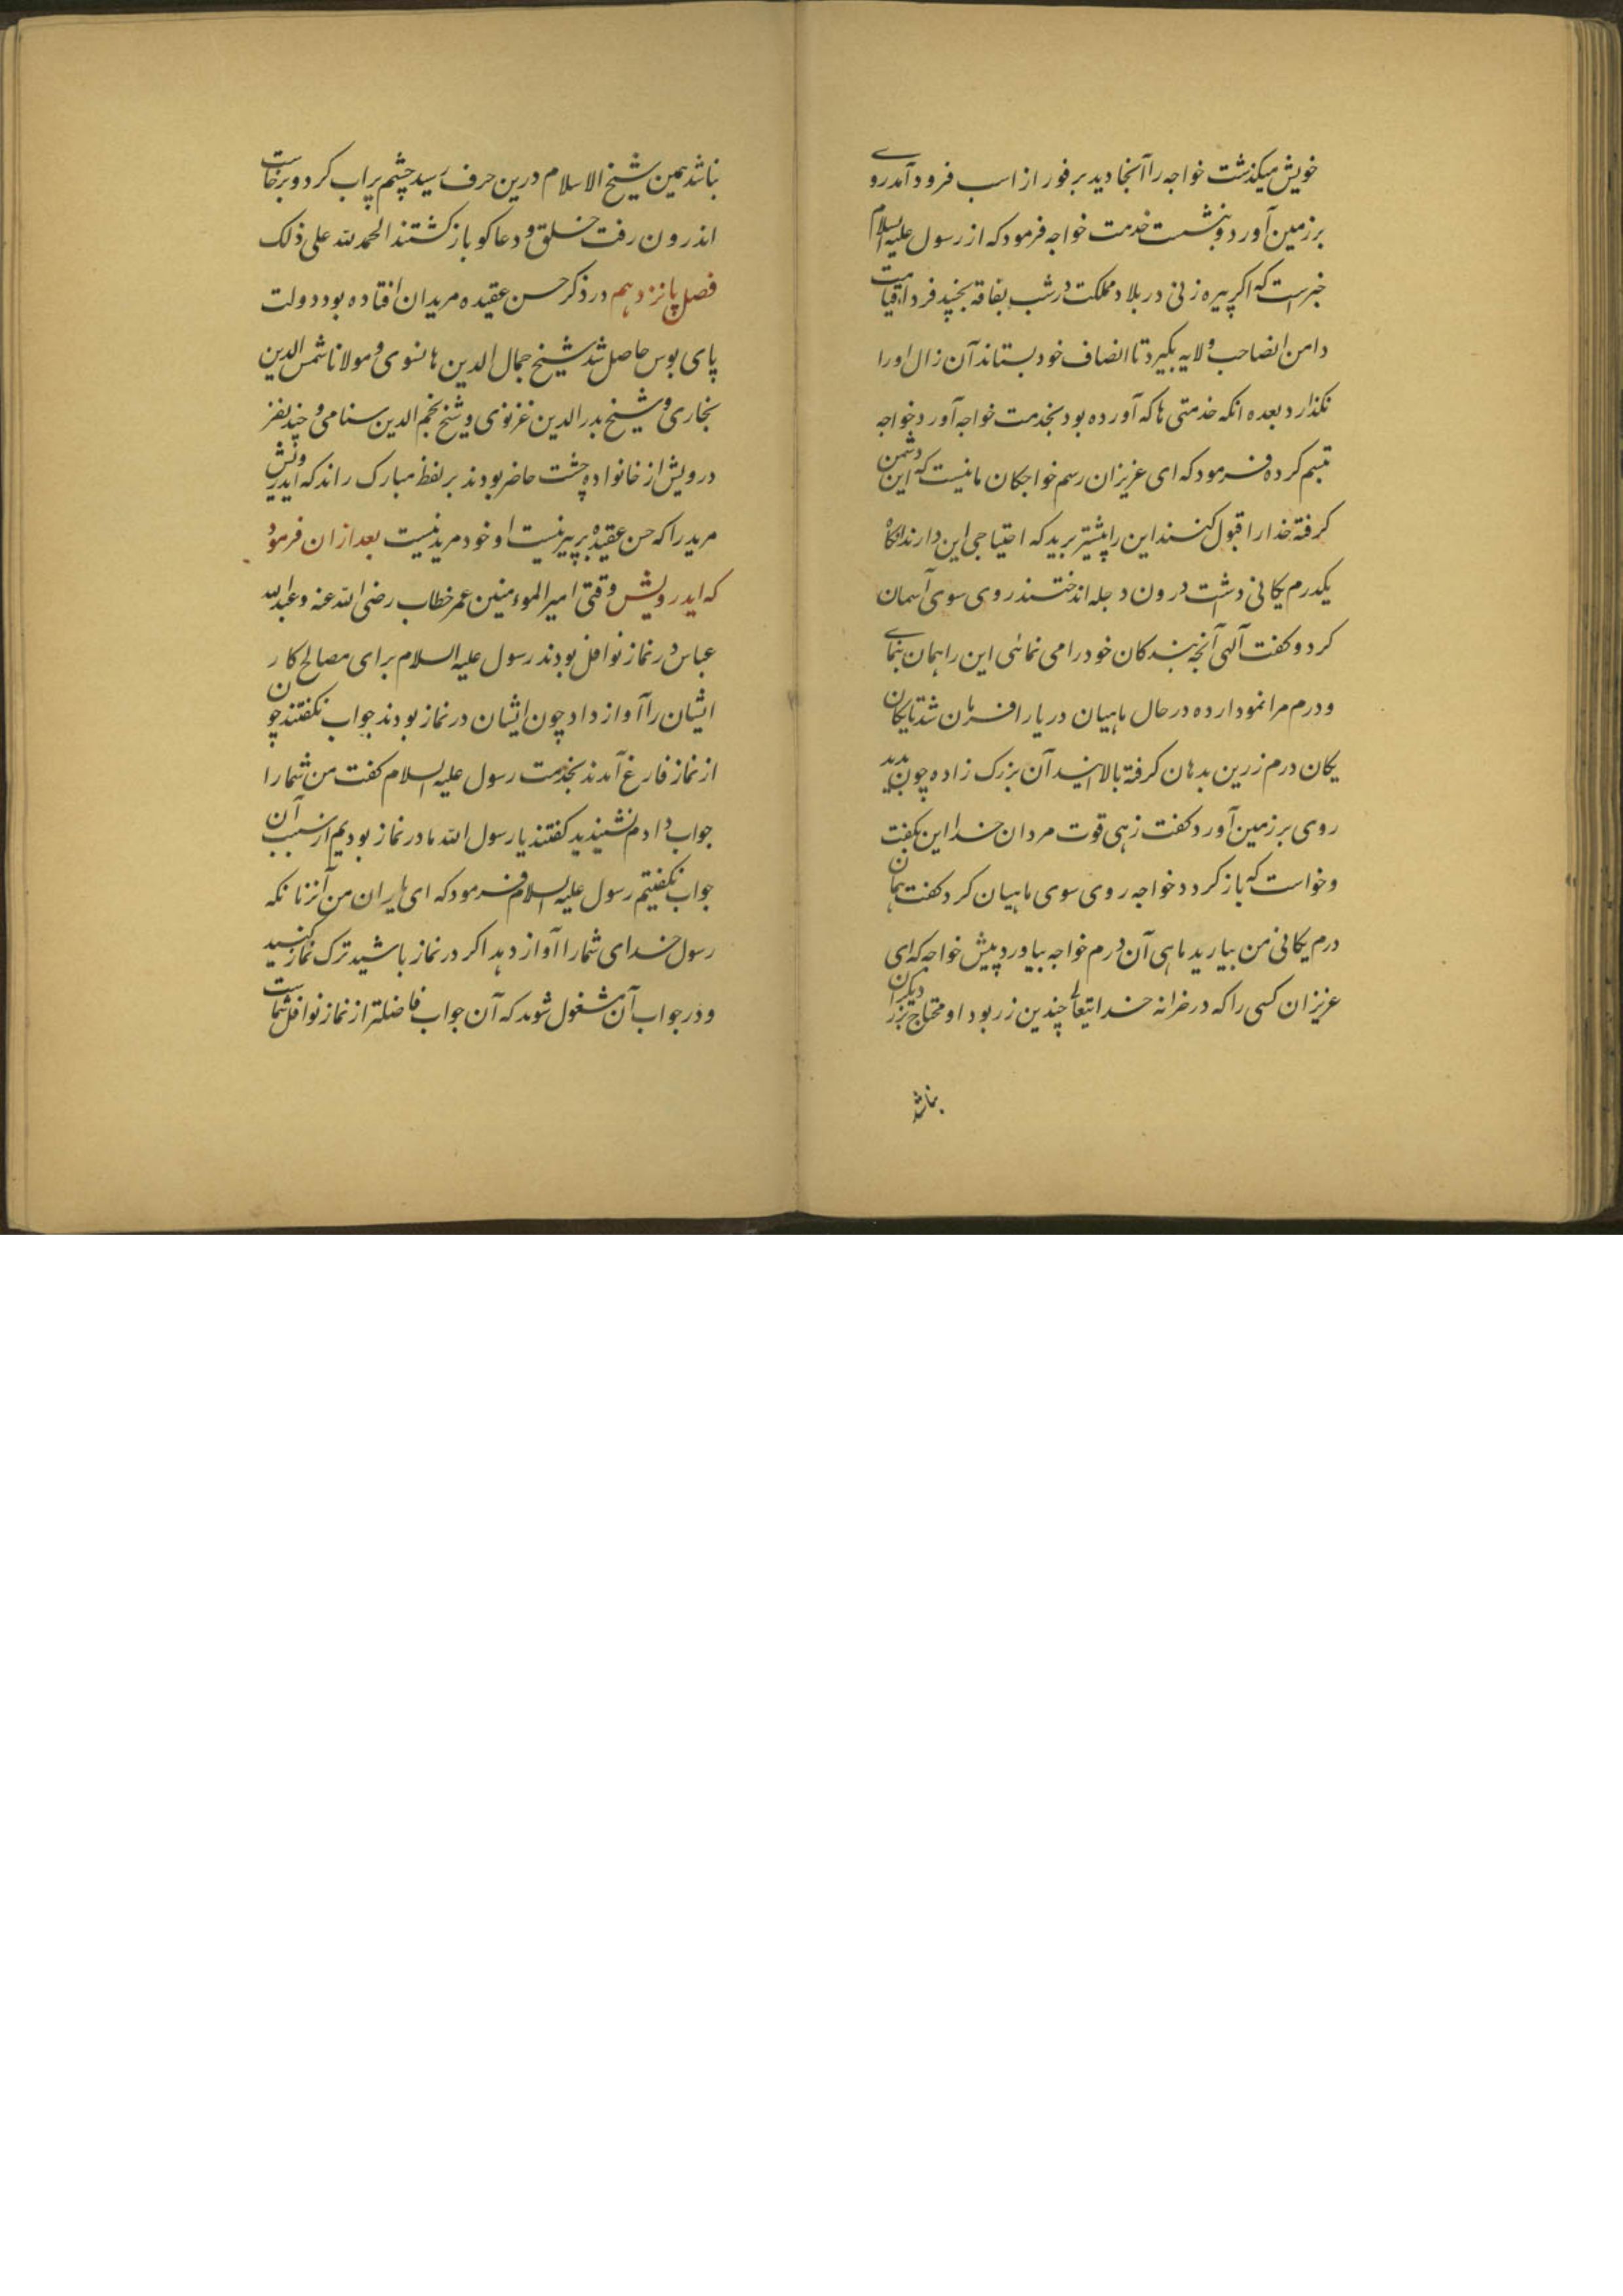 خویش میکذشت خواجه را آنجا دید بر فور از اسب فرود آمد روے
بر زمین آورد و بنشست خدمت خواجه فرمود که از رسول علیه السلام
خبر است که اکر پیره زنی در بلاد مملکت در شب بفاقه بخپد فردا قیامت
دامن انصاحب ولایه بکیرد تا انصاف خود بستاند آن زال او را
نکذارد بعده انکه خدمتی ها که آورده بود بخدمت خواجه آورد خواجه
تبسم کرده فرمود که ای عزیزان رسم خواجکان ما نیست که این دشمن
کرفته خدا را قبول کنند این را پیشتر برید که احتیاجی این دارند انکاه
یکدرم یکانی دشت درون دجله انداختند روی سوی آسمان
کرد و کفت الهی آنچه بندکان خود را می نمائی این را همان بنمای
و درم مرا نمودار ده در حال ماهیان دریا را فرمان شد تا یکان
یکان درم زرین بدهان کرفته بالا ایند آن بزرک زاده چون بدید
روی بر زمین آورد کفت زهی قوت مردان خدا این بکفت
و خواست که باز کردد خواجه روی سوی ماهیان کرد کفت همان
درم یکانی من بیارید ماهی آن درم خواجه بیاورد پیش خواجه که ای
عزیزان کسی را که در خزانه خدایتعالے چندین زر بود او محتاج بزر دیکران
نباشد
نباشد همین شیخ الاسلام درین حرف رسید چشم پر اب کرد و برخاست
اندرون رفت خلق و دعا کو باز کشتند الحمد لله علی ذلک
فصل پانزدهم در ذکر حسن عقیده مریدان افتاده بود دولت
پای بوس حاصل شد شیخ جمال الدین هانسوی و مولانا شمس الدین
بخاری و شیخ بدر الدین غزنوی و شیخ نجم الدین سنامی و چند نفر
درویش از خانواده چشت حاضر بودند بر لفظ مبارک راند که ایدرویش
مرید را که حسن عقیده بر پیر نیست او خود مرید نیست بعد از ان فرمود
که ایدرویش وقتی امیر الموءمنین عمر خطاب رضی الله عنه و عبد الله
عباس در نماز نوافل بودند رسول علیه السلام برای مصالح کار
ایشان را آواز داد چون ایشان در نماز بودند جواب نکفتند چون
از نماز فارغ آمدند بخدمت رسول علیه السلام کفت من شما را
جواب دادم نشنیدید کفتند یا رسول الله ما در نماز بودیم از سبب آن
جواب نکفتیم رسول علیه السلام فرمود که ای یاران من آنزمانکه
رسول خدای شما را آواز دهد اکر در نماز باشید ترک نماز کنید
و در جواب آن مشغول شوید که آن جواب فاضلتر از نماز نوافل شماست